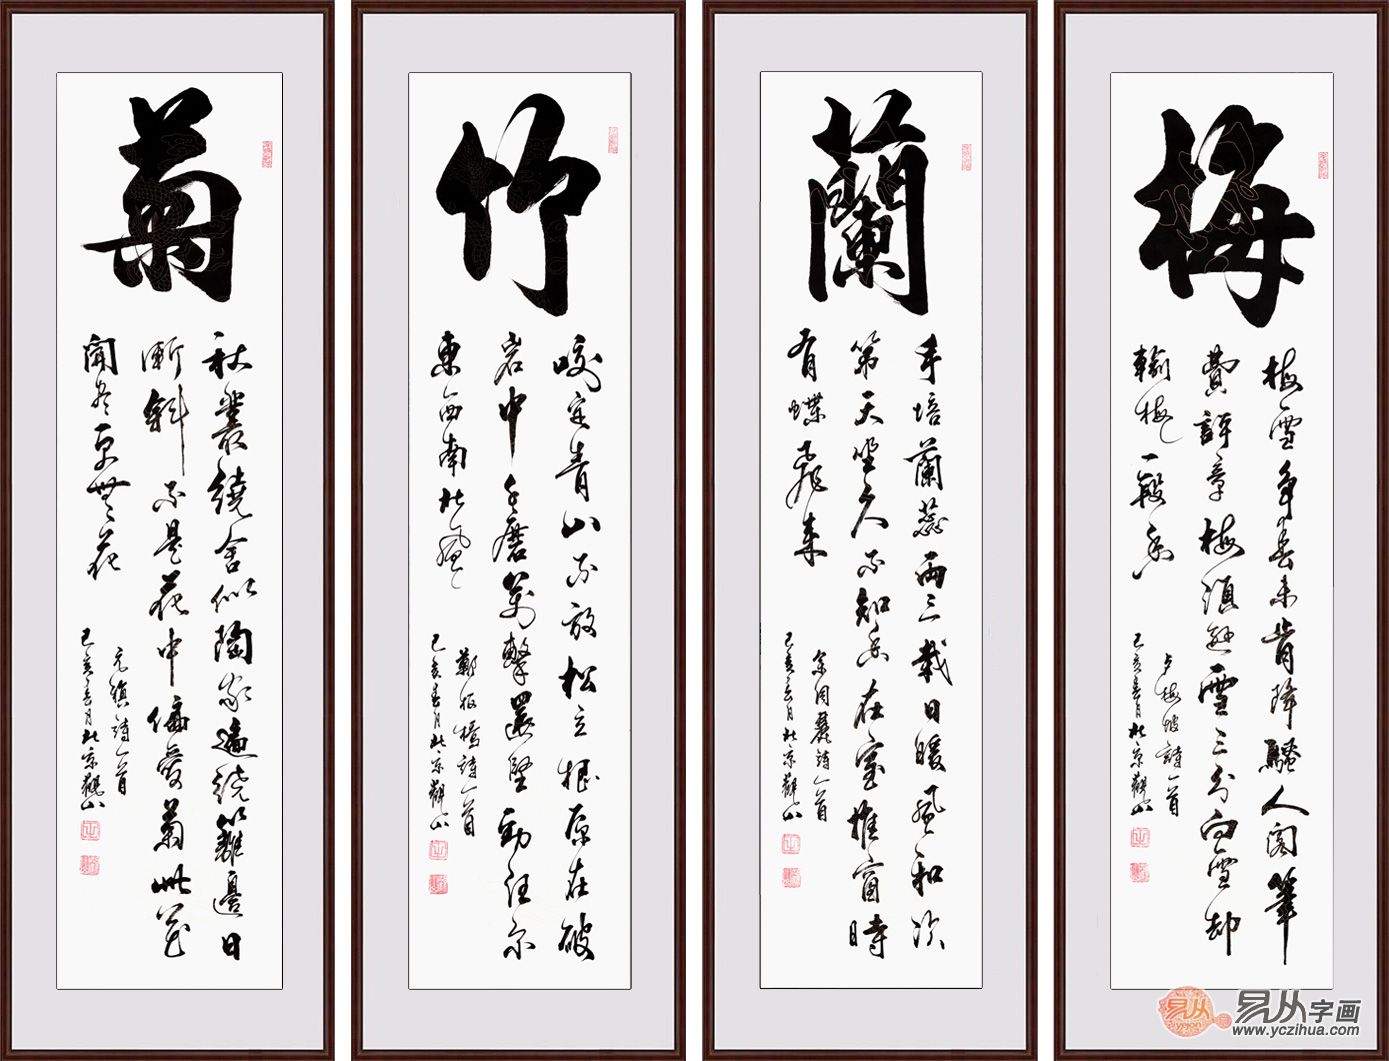 梅
梅雪争春未肯降騷人閣筆
費評章梅須遜雪三分白雪却
輸梅一段香
卢梅坡詩一首
己亥春月北京觀山
蘭
手培蘭蕊兩三載日暖風和次
第天坐久不知香在室推窗時
有蝶飛來
余同麓詩一首
己亥春月北京觀山
竹
咬定青山不放松立根原在破
岩中千磨萬擊還堅勁任尔
東西南北風
鄭板橋詩一首
己亥春月北京觀山
菊
秋叢繞舍似陶家遍繞籬邊日
漸斜不是花中偏愛菊此花
開尽更無花
元稹詩一首
己亥春月北京觀山
易从
yicjon
易从字画
www.yczihua.com